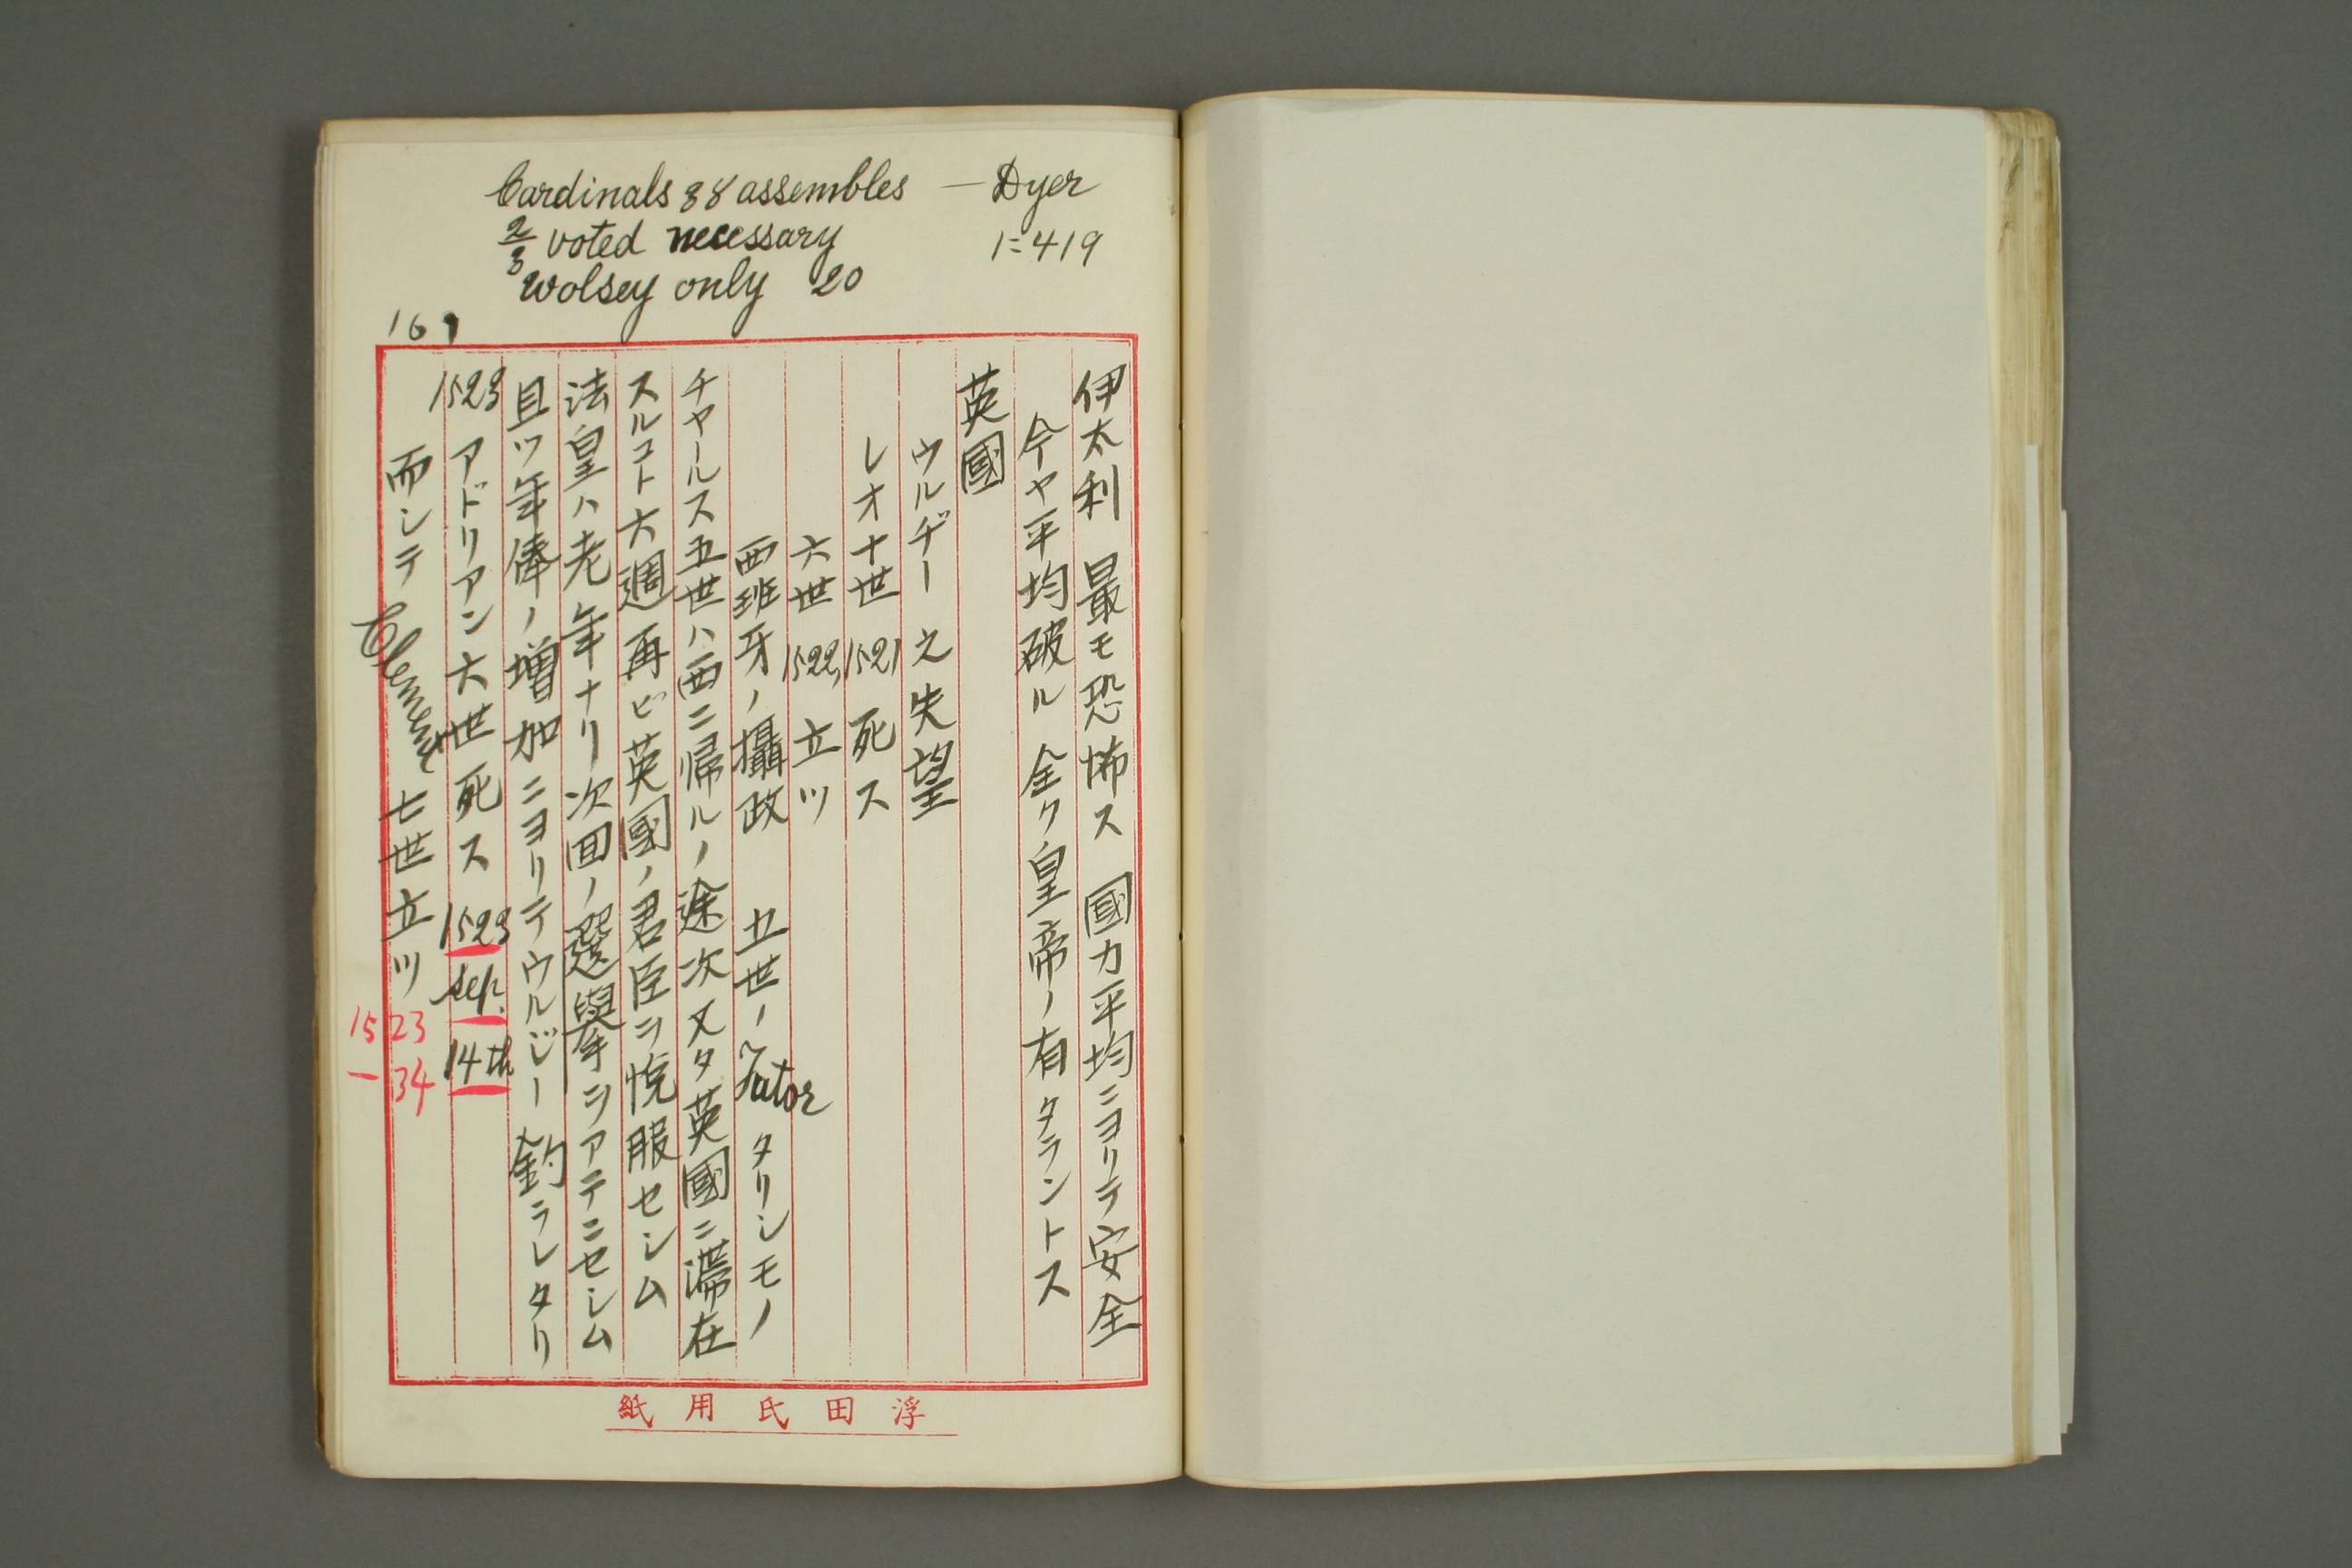 Cardinals 38 assembles — Dyer
2/3 voted necessary 1=419
Wolsey only 20
伊太利 最モ恐怖ス 國力平均ニヨリテ安全
今ヤ平均破ル 全ク皇帝ノ有タラントス
英國
ウルヂー之失望
レオ十世 1521 死ス
六世 1522, 立ツ
西班牙ノ攝政 五世ノ Tutor タリシモノ
チャールス五世ハ西ニ帰ルノ途次又タ英國ニ滞在
スルコト六週再ビ英國ノ君臣ヲ悦服セシム
法皇ハ老年ナリ次回ノ選擧ヲアテニセシム
且ツ年俸ノ増加ニヨリテウルジー釣ラレタリ
1523 アドリアン六世死ス 1523 Sep. 14th
而シテ Clement 七世立ツ 1523
—34
浮田氏用紙